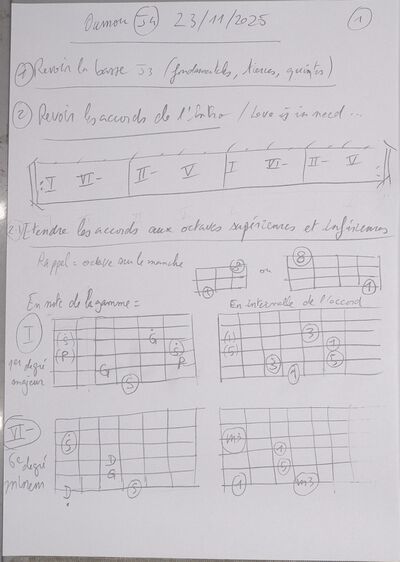 Oumou J4 23/11/2025 1
1 Revoir la basse J3 (fondamentales, tierces, quintes)
2 Revoir les accords de l'Intro / Love is in need ...
I VI- II- V I VI- II- V
Etendre les accords aux octaves supérieures et inférieures
Rappel = octave sur le manche
8 ou 8
1 1
En note de la gamme = En intervalle de l'accord
I
1er degré majeur
(S) G
(R) S
R
G
S
(1) 3
(5) 1
3 5
1
VI-
6e degré mineur
S
D
G
D S
m3
1
5
1 m3